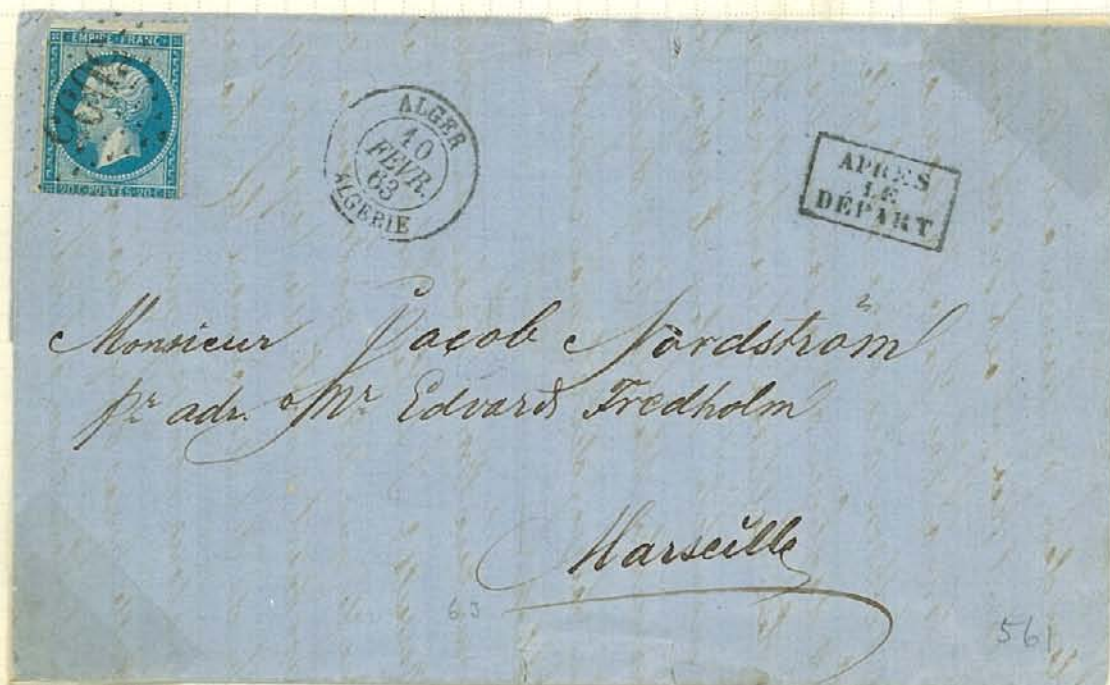 EMPIRE FRANC
20 C POSTES 20 C
ALGER
10
FEVR.
63
ALGERIE
APRES
LE
DEPART
Monsieur Jacob Nordström
pr adr. Mr Edvard Fredholm
Marseille
63
561